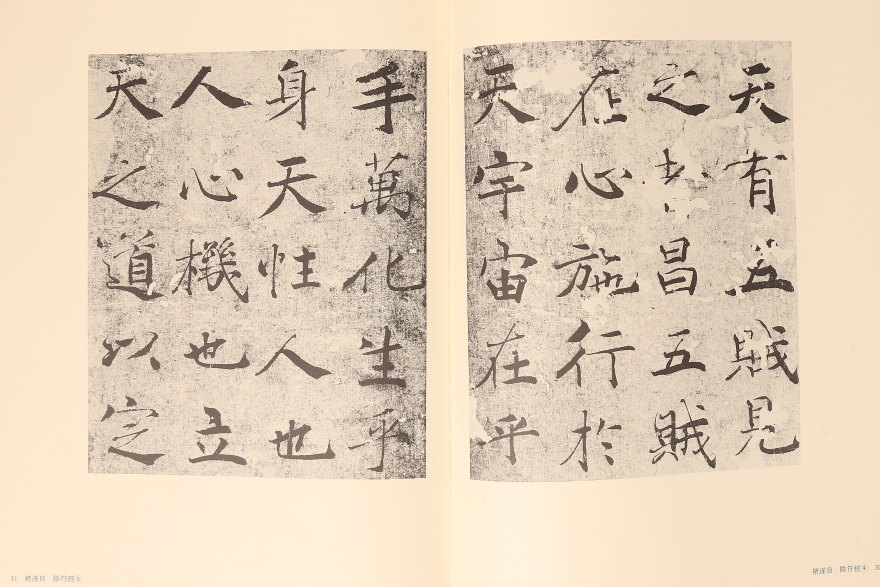 天有五賊見
之者昌五賊
在心施行於
天宇宙在乎
手萬化生乎
身天性人也
人心機也立
天之道以定
褚遂良 陰符經④ 30
31 褚遂良 陰符經⑤